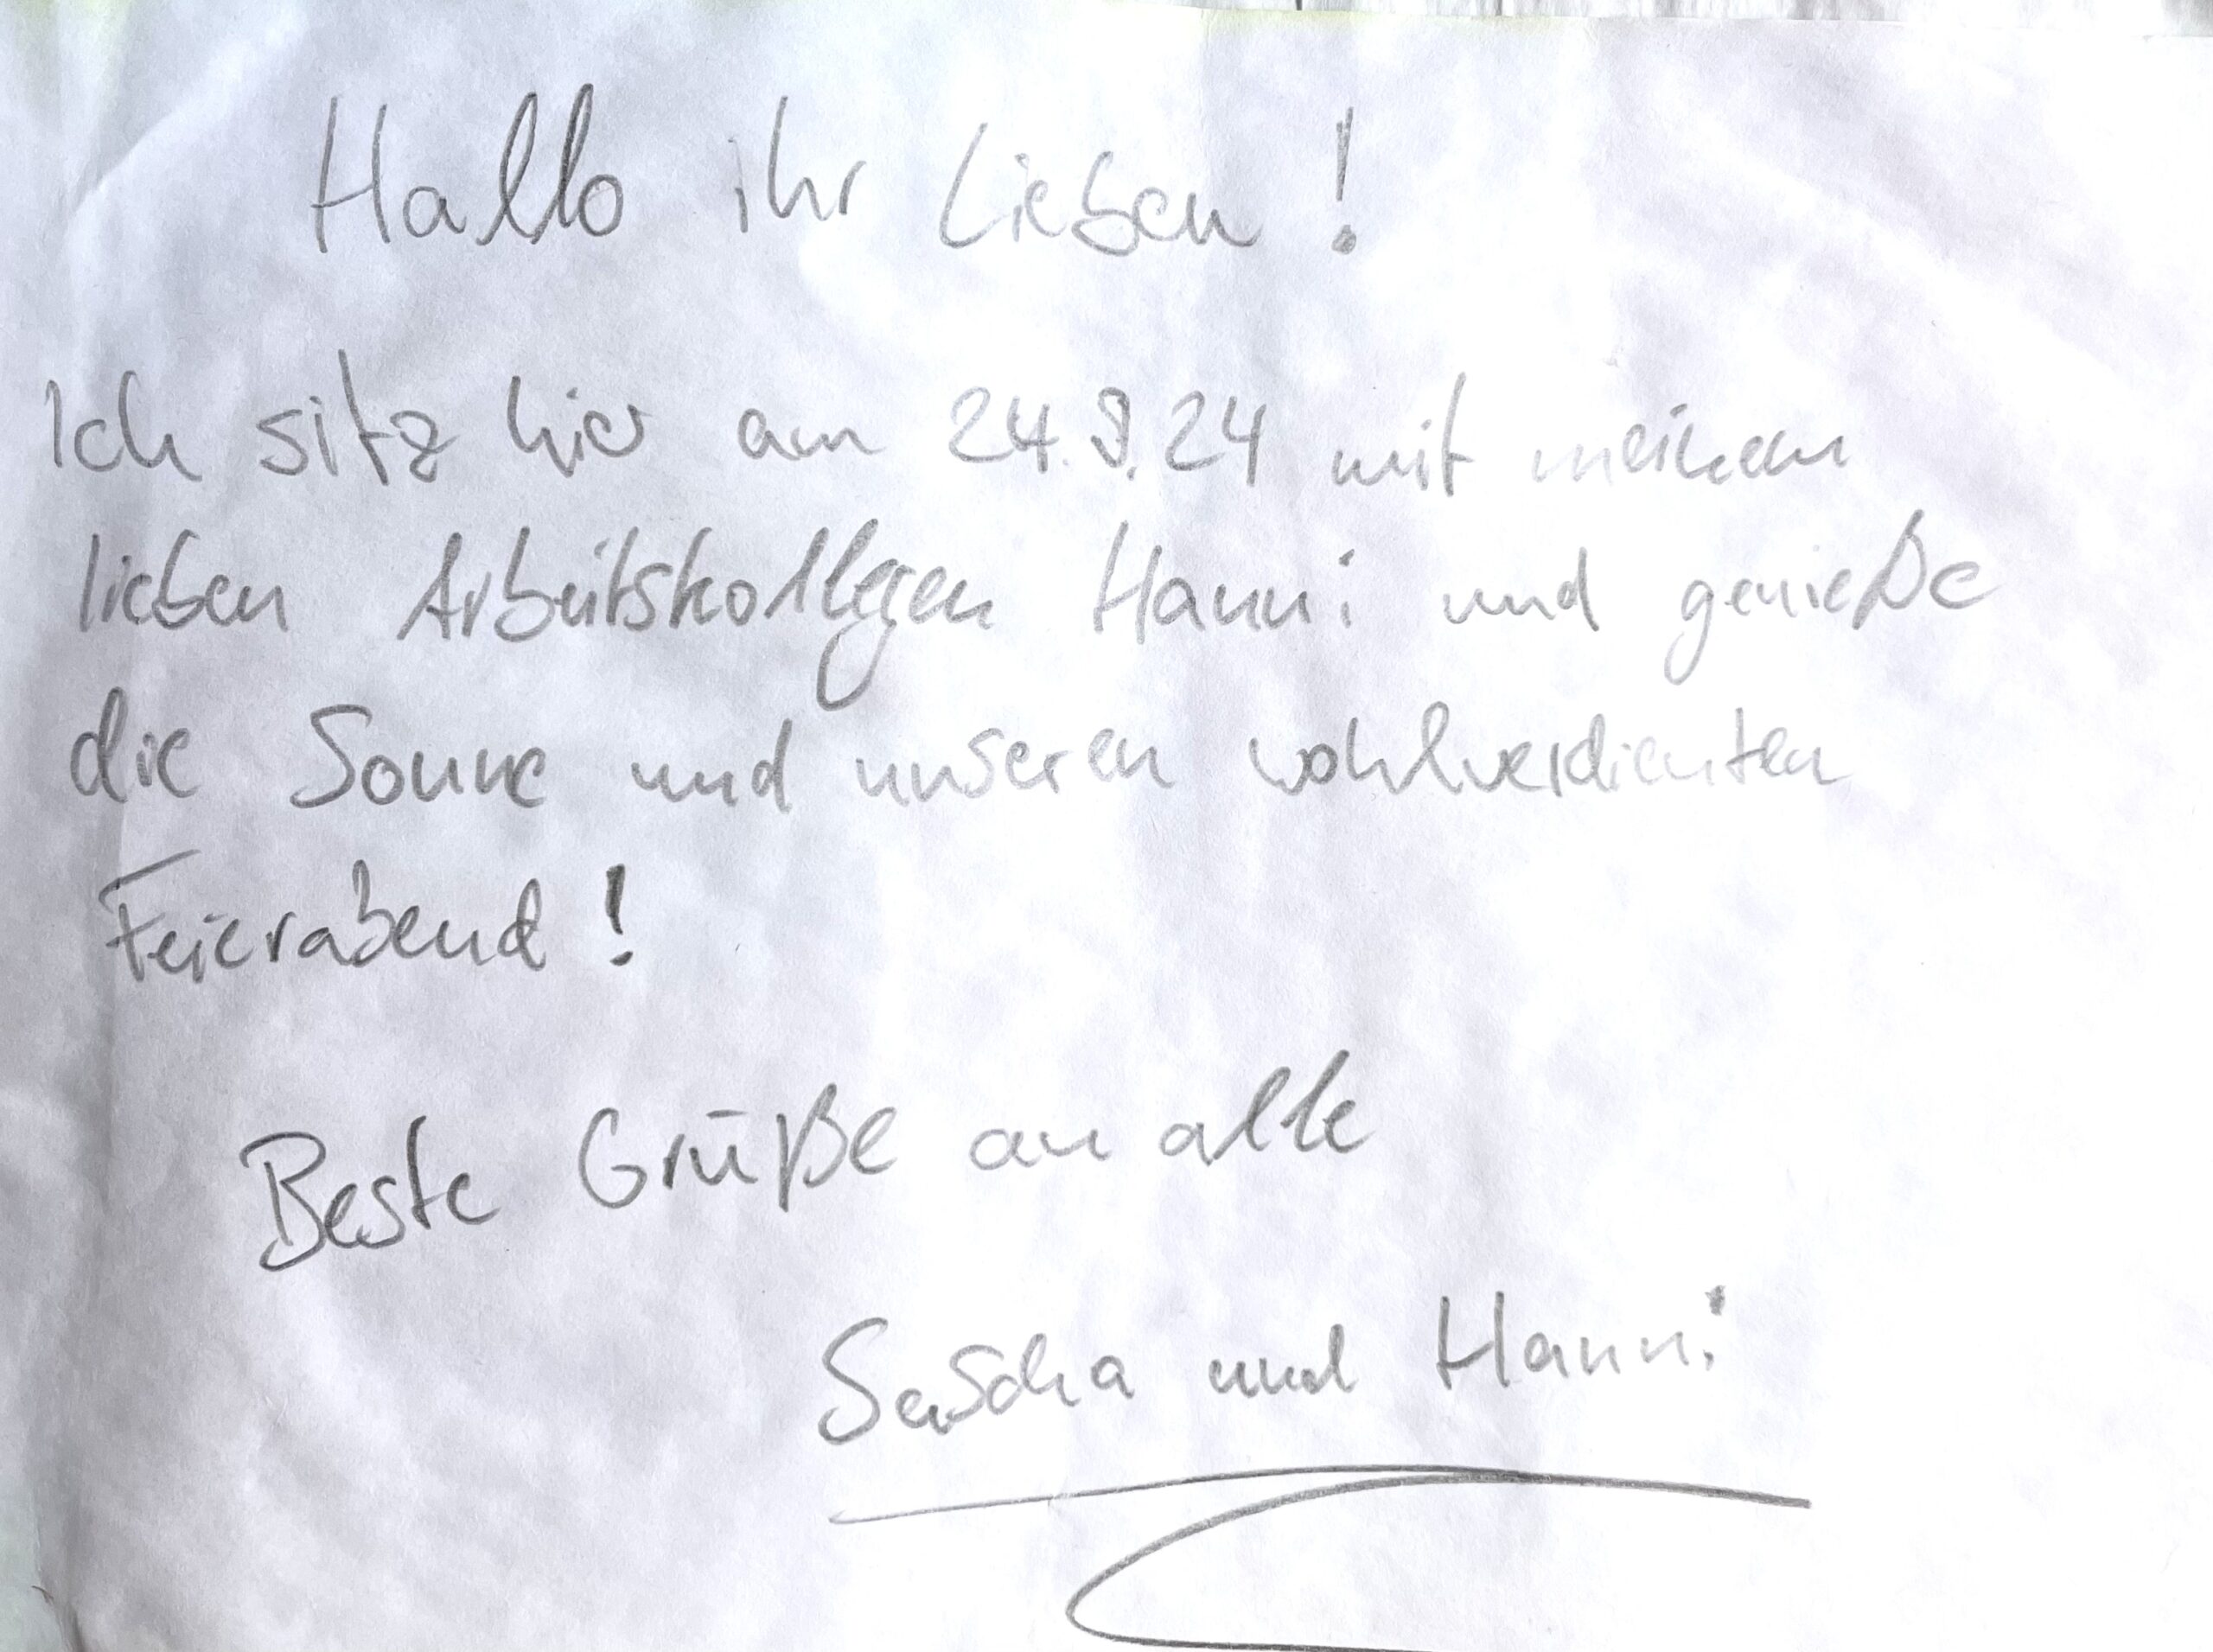 Hallo ihr Lieben!
Ich sitz hier am 24.8.24 mit meinem
lieben Arbeitskollegen Hanni und genieße
die Sonne und unseren wohlverdienten
Feierabend!
Beste Grüße an alle
Sascha und Hanni